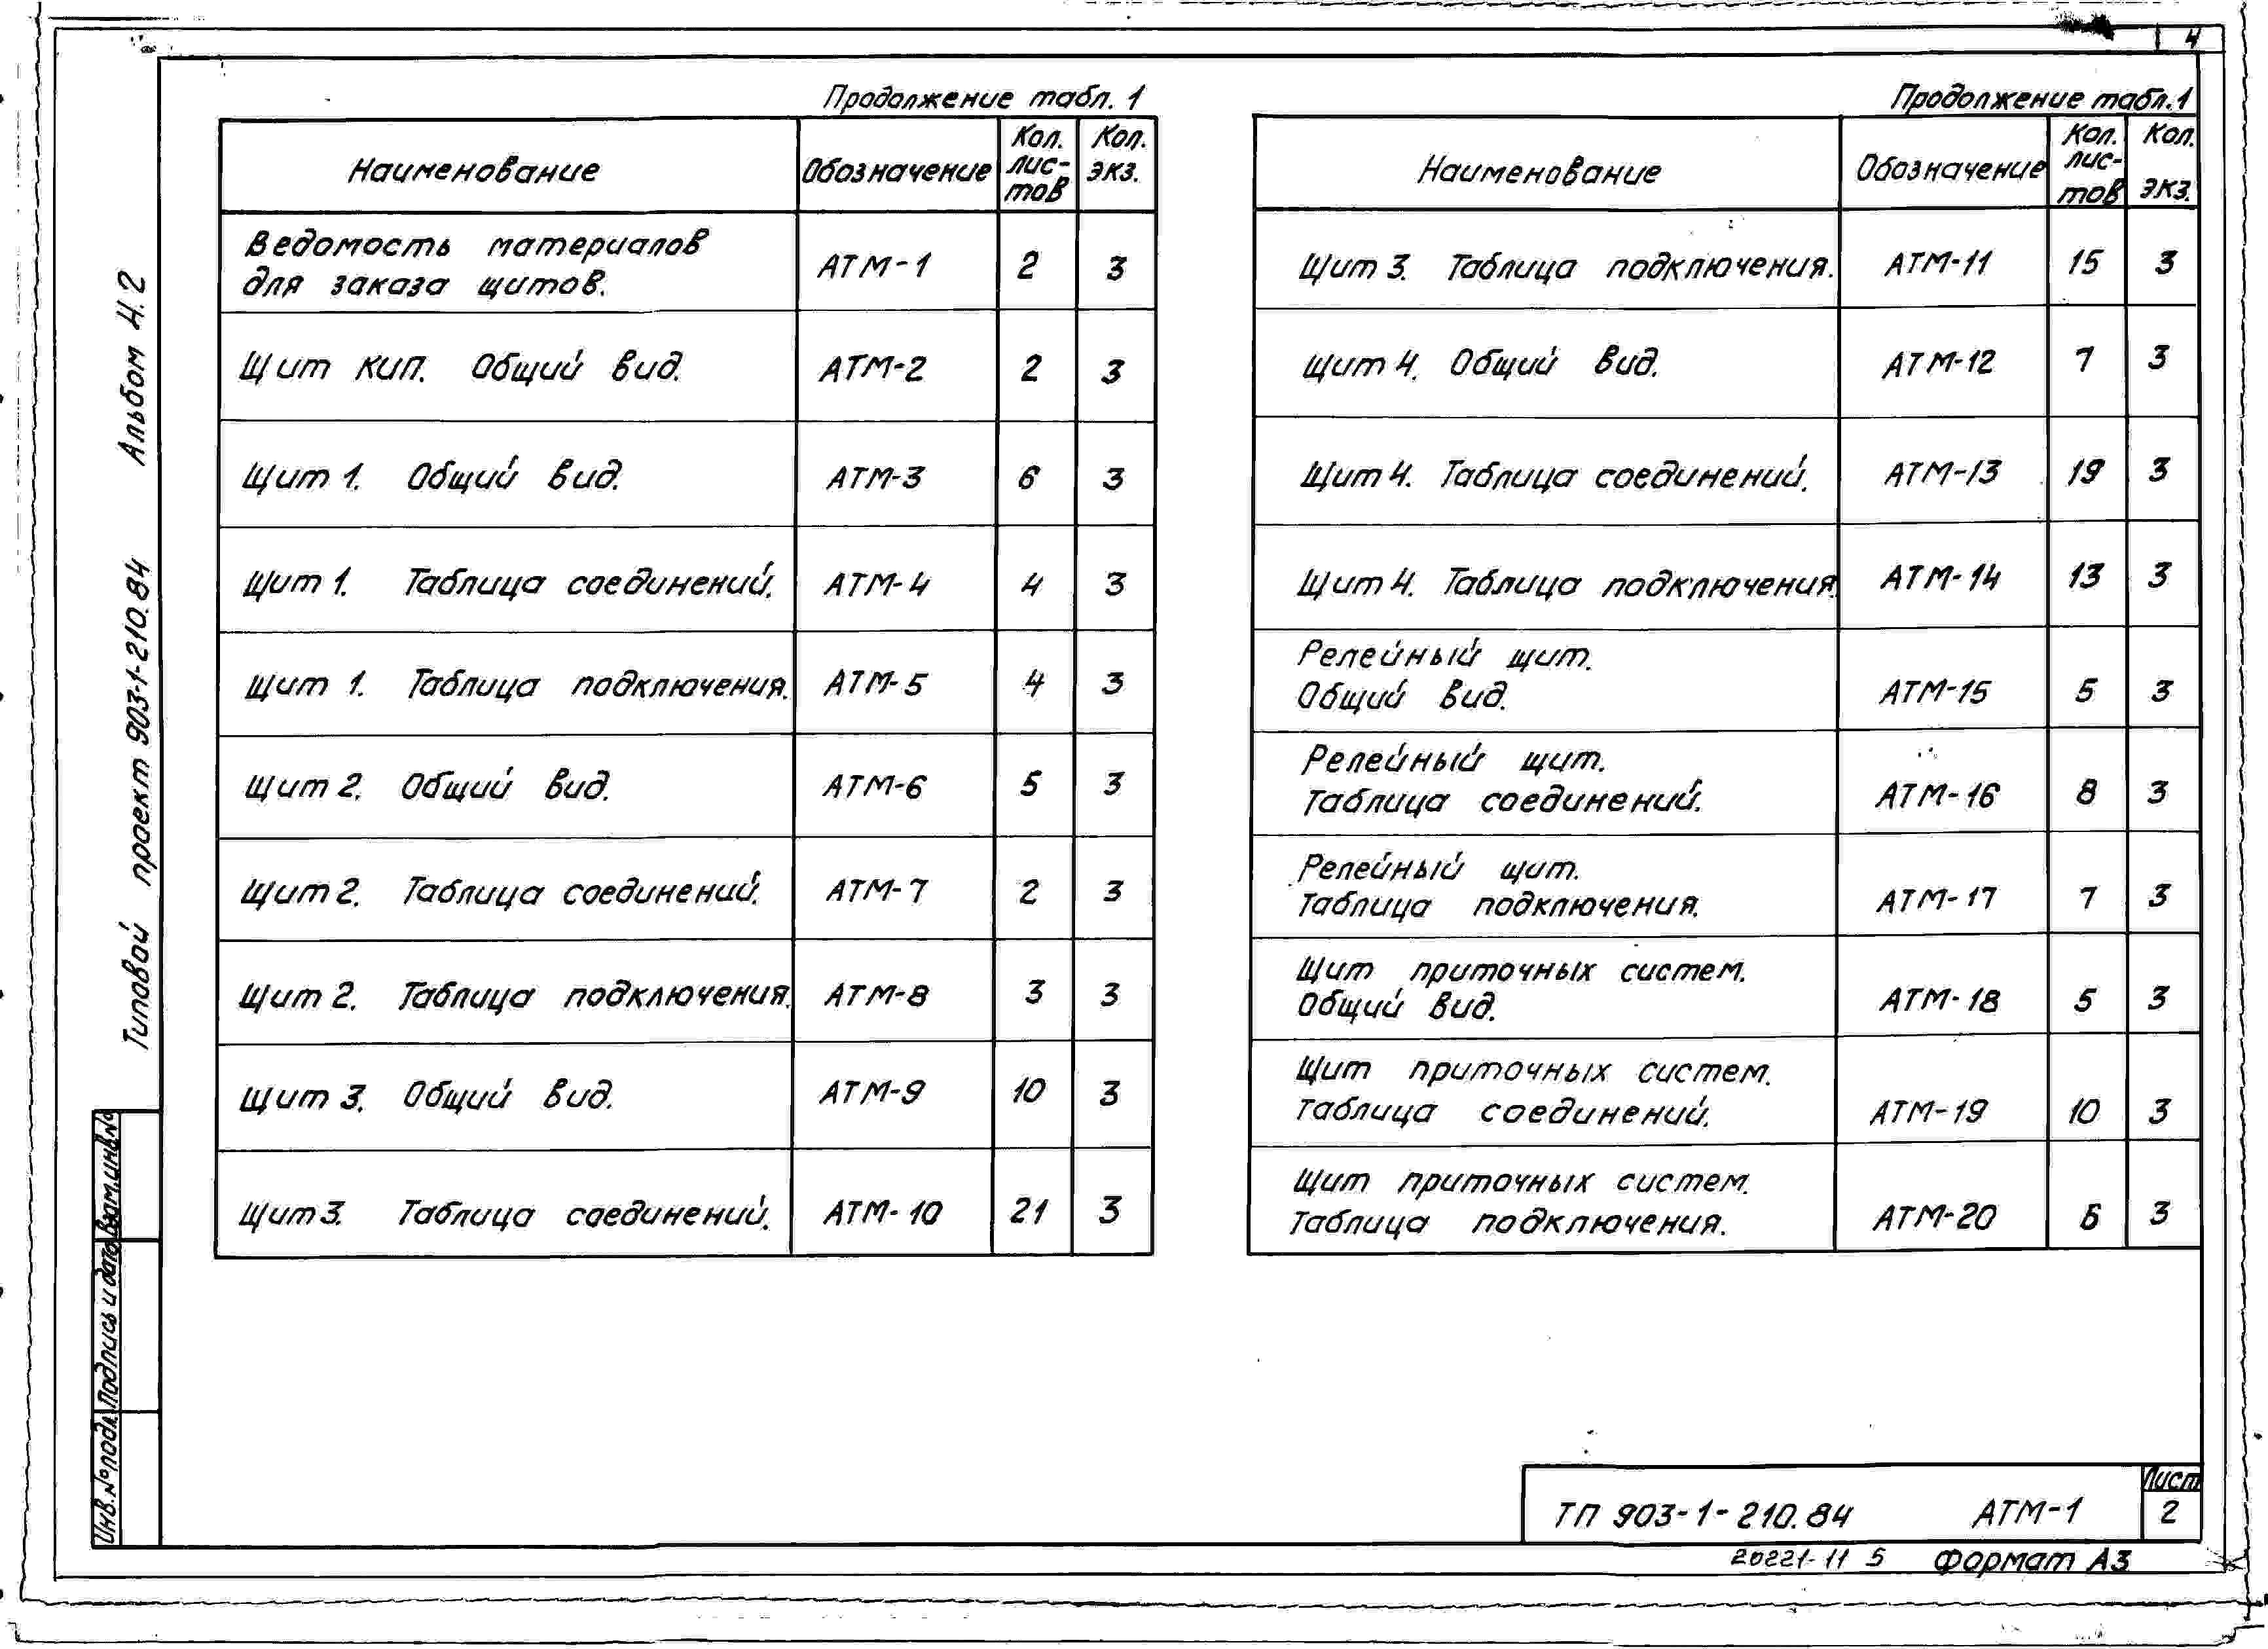 4
Продолжение табл. 1
Наименование Обозначение Кол. лис- тов Кол. экз.
Ведомость материалов
для заказа щитов. АТМ-1 2 3
Щит КИП. Общий вид. АТМ-2 2 3
Щит 1. Общий вид. АТМ-3 6 3
Щит 1. Таблица соединений. АТМ-4 4 3
Щит 1. Таблица подключения. АТМ-5 4 3
Щит 2. Общий вид. АТМ-6 5 3
Щит 2. Таблица соединений. АТМ-7 2 3
Щит 2. Таблица подключения. АТМ-8 3 3
Щит 3. Общий вид. АТМ-9 10 3
Щит 3. Таблица соединений. АТМ-10 21 3
Продолжение табл.1
Наименование Обозначение Кол. лис- тов Кол. экз.
Щит 3. Таблица подключения. АТМ-11 15 3
Щит 4. Общий вид. АТМ-12 7 3
Щит 4. Таблица соединений. АТМ-13 19 3
Щит 4. Таблица подключения. АТМ-14 13 3
Релейный щит.
Общий вид. АТМ-15 5 3
Релейный щит.
Таблица соединений. АТМ-16 8 3
Релейный щит.
Таблица подключения. АТМ-17 7 3
Щит приточных систем.
Общий вид. АТМ-18 5 3
Щит приточных систем.
Таблица соединений. АТМ-19 10 3
Щит приточных систем.
Таблица подключения. АТМ-20 6 3
Типовой проект 903-1-210.84 Альбом 4.2
Инв.№подл. Подпись и дата Взам.инв.№
ТП 903-1-210.84 АТМ-1
Лист
2
20221-11 5 Формат А3